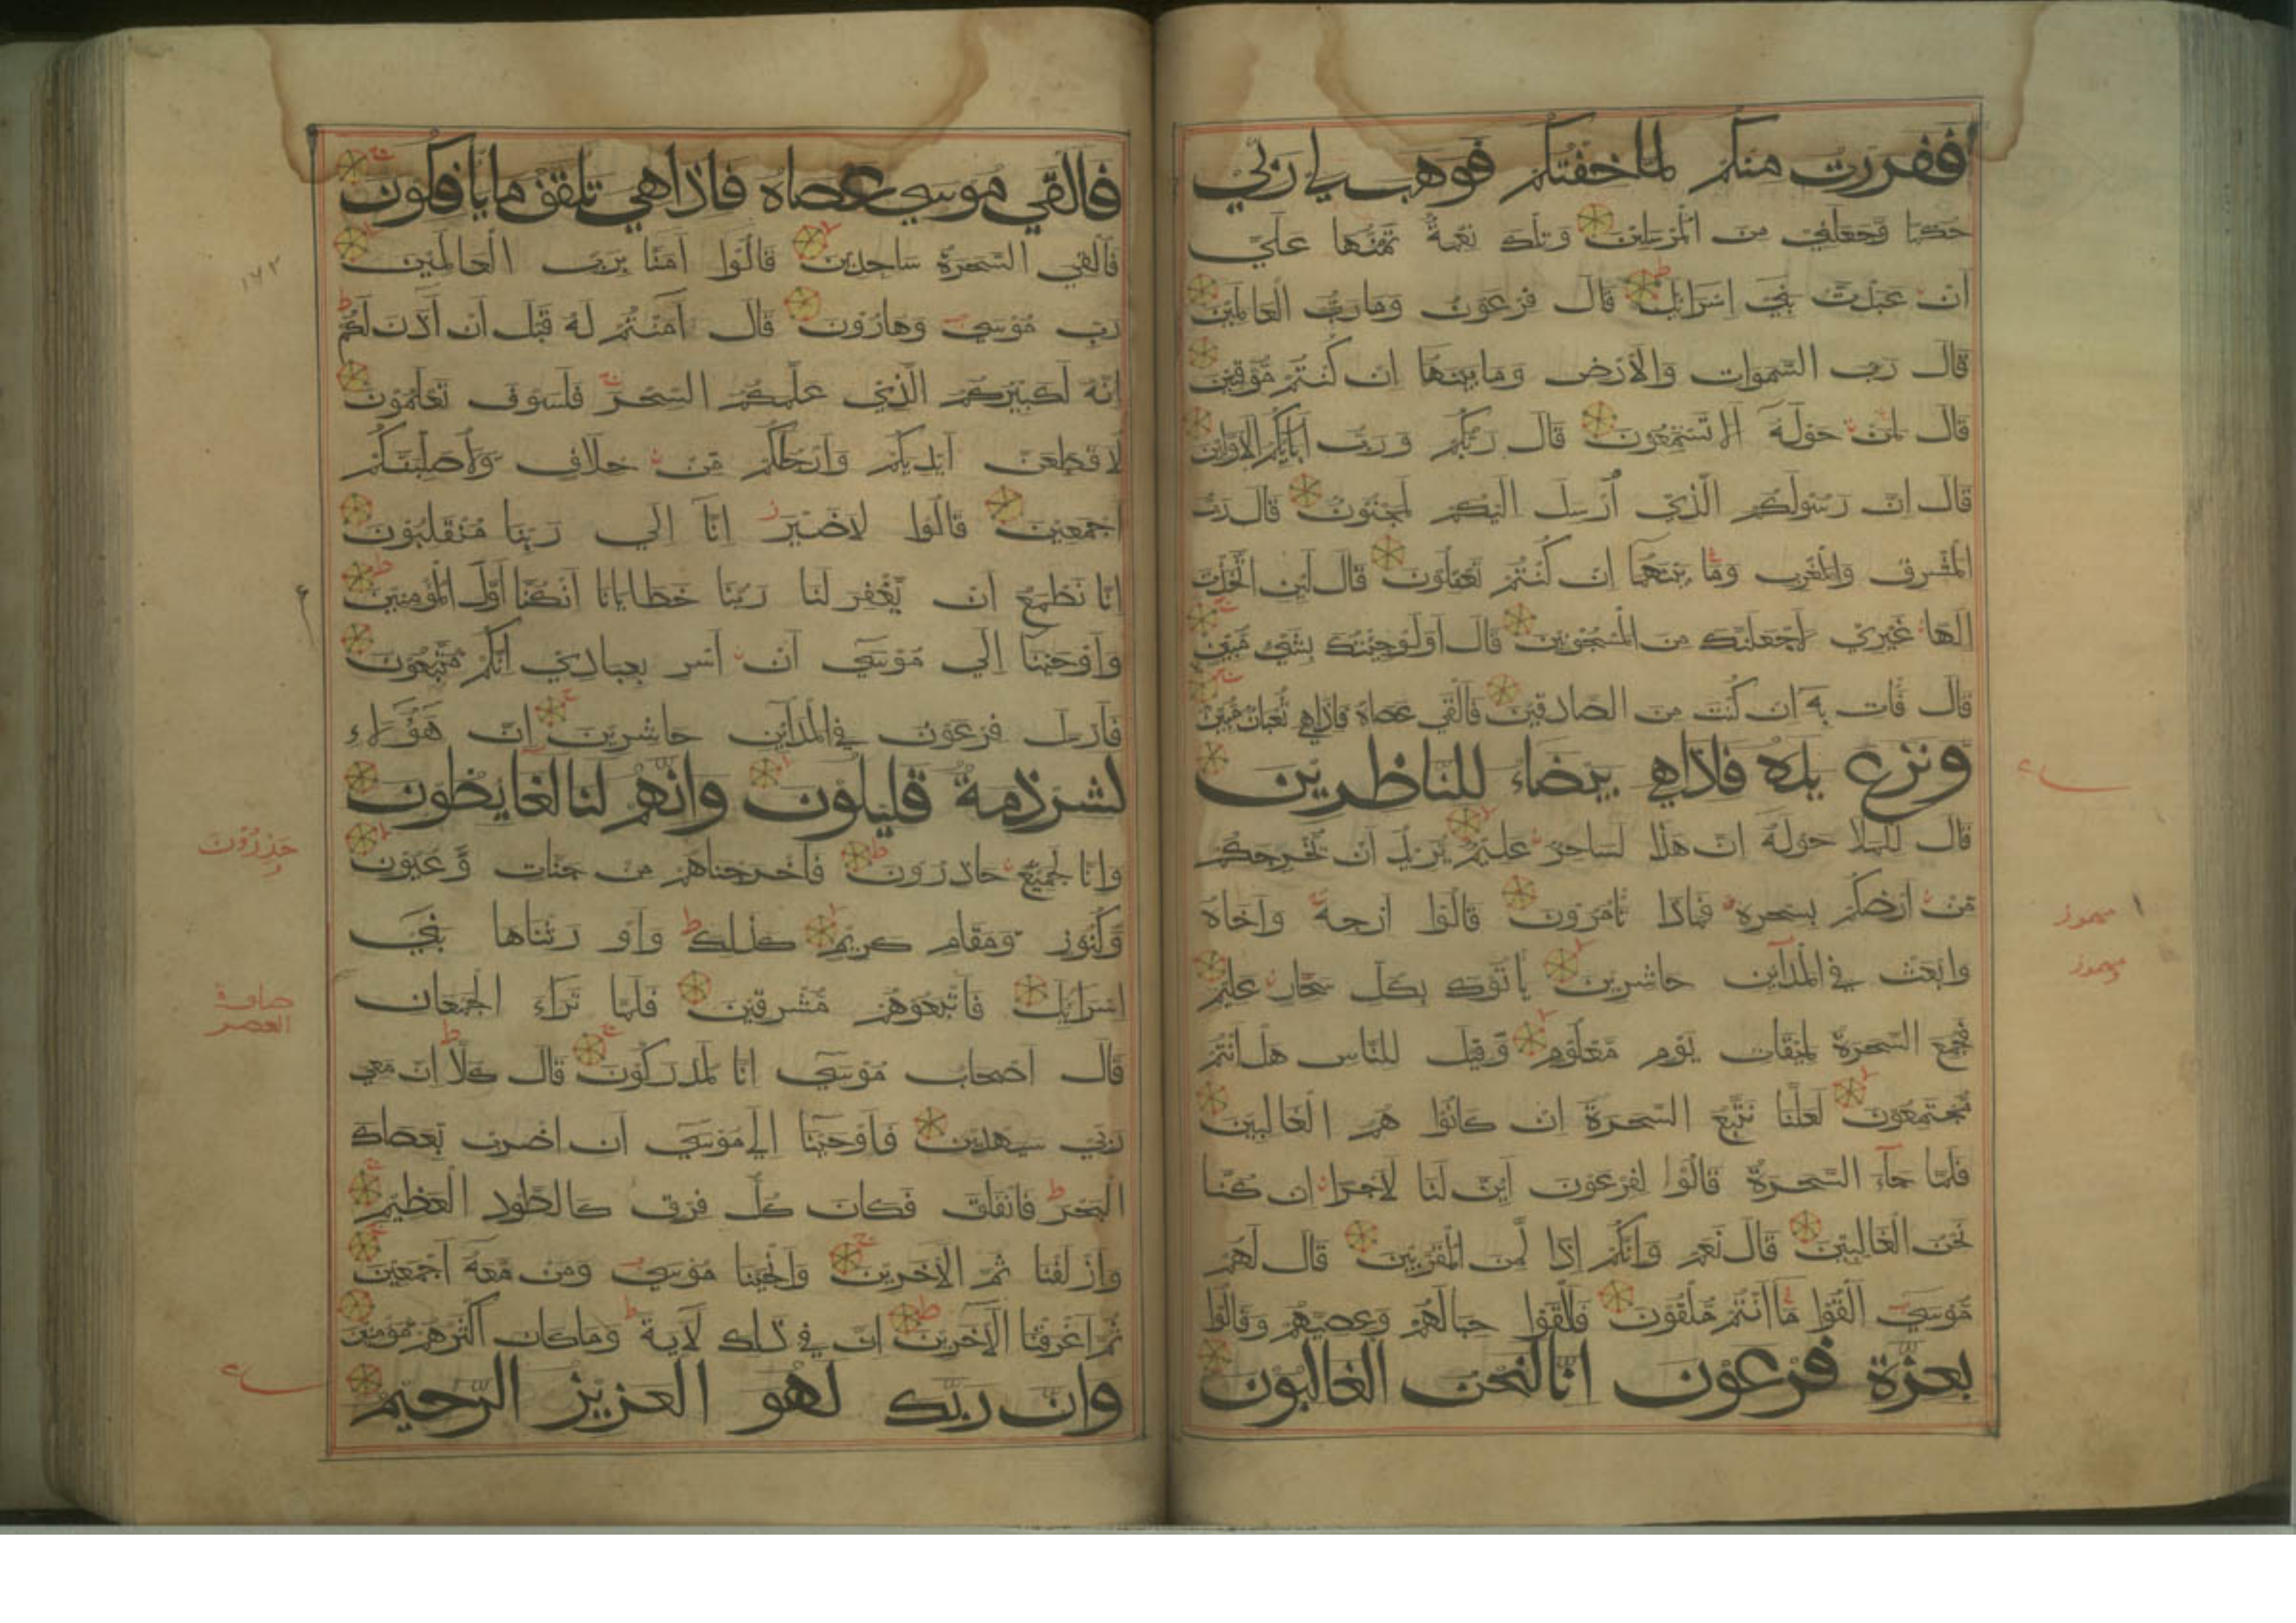 ففررت منكم لما خفتكم فوهب لي ربي
حكما وجعلني من المرسلين وتلك نعمة تمنها علي
ان عبدت بني اسرائل قال فرعون وما رب العالمين
قال رب السموات والارض وما بينهما ان كنتم موقنين
قال لمن حوله الا تستمعون قال ربكم ورب ابائكم الاولين
قال ان رسولكم الذي ارسل اليكم لمجنون قال رب
المشرق والمغرب وما بينهما ان كنتم تعقلون قال لين اتخذت
الها غيري لاجعلنك من المسجونين قال اولو جئتك بشيء مبين
قال فات به ان كنت من الصادقين فالقي عصاه فاذا هي ثعبان مبين
ونزع يده فاذا هي بيضاء للناظرين
قال للملا حوله ان هذا لساحر عليم يريد ان يخرجكم
من ارضكم بسحره فماذا تامرون قالوا ارجه واخاه
وابعث في المداين حاشرين ياتوك بكل سحار عليم
فجمع السحرة لميقات يوم معلوم وقيل للناس هل انتم
مجتمعون لعلنا نتبع السحرة ان كانوا هم الغالبين
فلما جاء السحرة قالوا لفرعون اين لنا لاجرا ان كنا
نحن الغالبين قال نعم وانكم اذا لمن المقربين قال لهم
موسي القوا ما انتم ملقون فالقوا حبالهم وعصيهم وقالوا
بعزة فرعون انا لنحن الغالبون
مهموز
مهموز
فالقي موسي عصاه فاذا هي تلقف ما يافكون
فالقي السحرة ساجدين قالوا امنا برب العالمين
رب موسي وهارون قال امنتم له قبل ان اذن لكم
انه لكبيركم الذي علمكم السحر فلسوف تعلمون
لاقطعن ايديكم وارجلكم من خلاف ولاصلبنكم
اجمعين قالوا لا ضير انا الي ربنا منقلبون
انا نطمع ان يغفر لنا ربنا خطايانا ان كنا اول المؤمنين
واوحينا الي موسي ان اسر بعبادي انكم متبعون
فارسل فرعون في المداين حاشرين ان هؤلاء
لشرذمة قليلون وانهم لنا لغايظون
وانا لجميع حاذرون فاخرجناهم من جنات وعيون
وكنوز ومقام كريم كذلك واورثناها بني
اسرائل فاتبعوهم مشرقين فلما تراء الجمعان
قال اصحاب موسي انا لمدركون قال كلا ان معي
ربي سيهدين فاوحينا الي موسي ان اضرب بعصاك
البحر فانفلق فكان كل فرق كالطود العظيم
وازلفنا ثم الاخرين وانجينا موسي ومن معه اجمعين
ثم اغرقنا الاخرين ان في ذلك لاية وما كان اكثرهم مؤمنين
وان ربك لهو العزيز الرحيم
١٦٢
حذرون
العصر